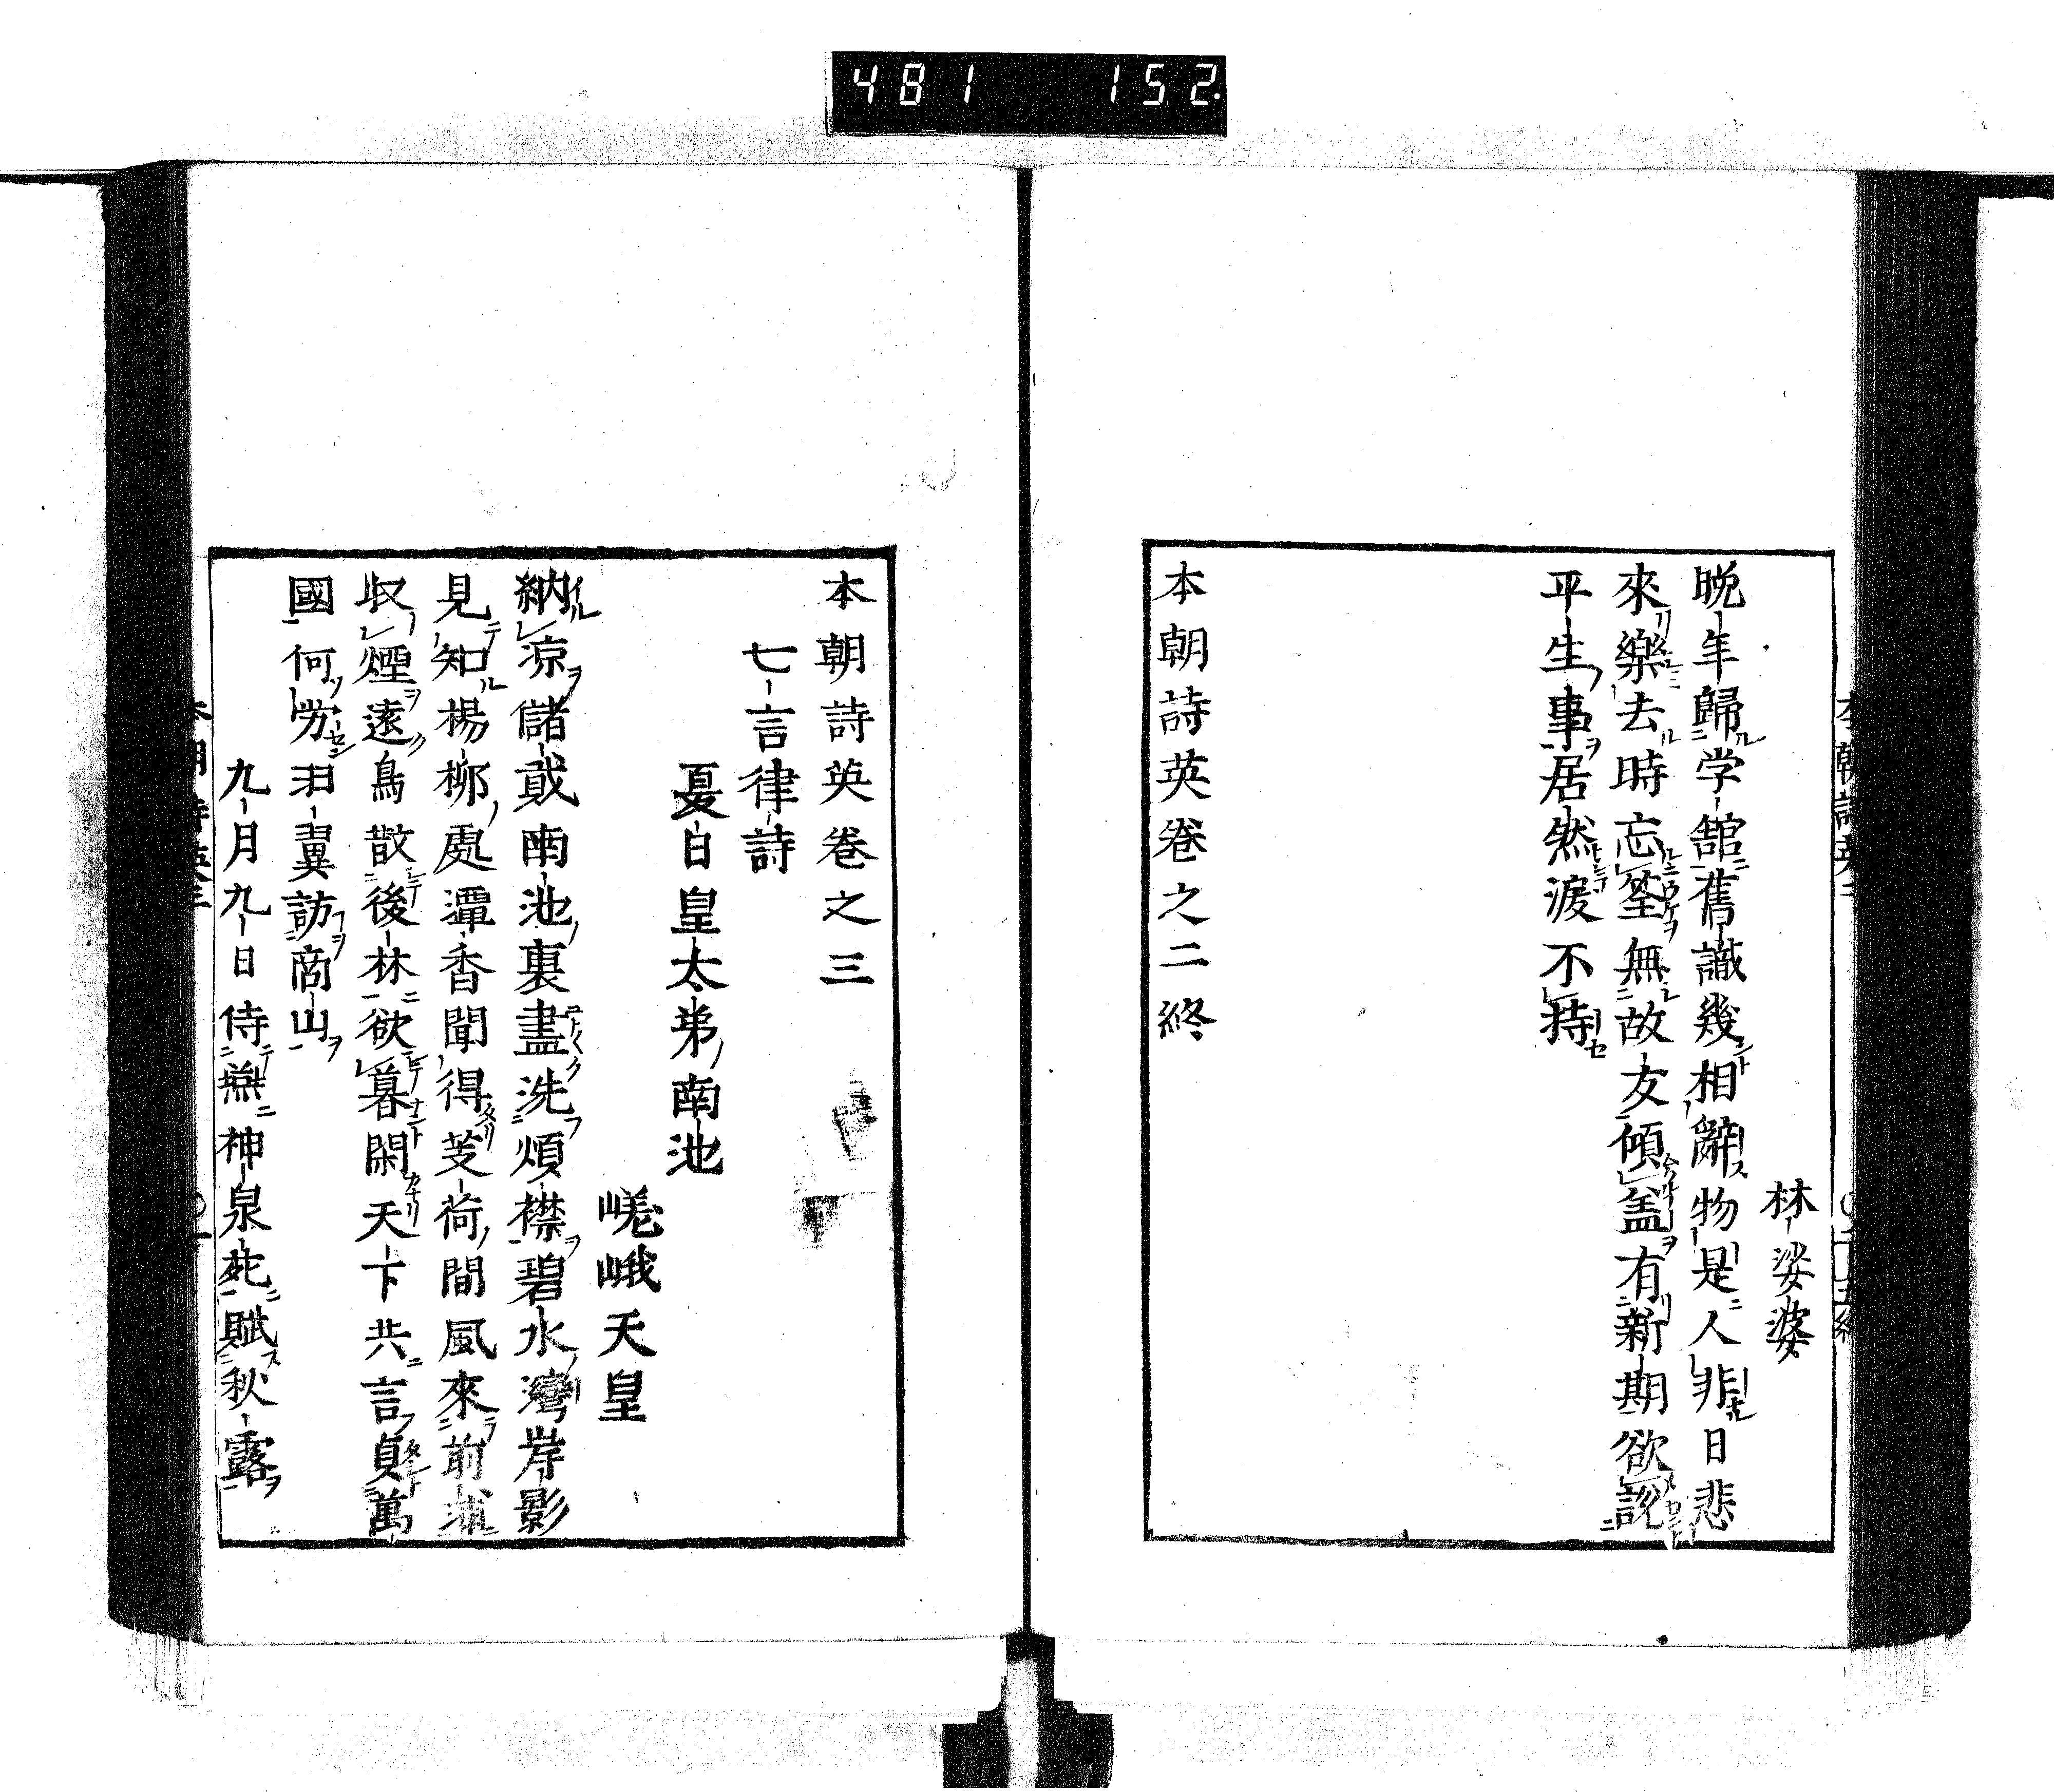 481 152
林娑婆
晩年歸学舘舊識幾相辭物是人非日悲
來樂去時忘筌無故友傾盖有新期欲説
平生事居然淚不持
本朝詩英卷之二終
本朝詩英卷之三
七言律詩
夏日皇太弟南池
嵯峨天皇
納凉儲貳南池裏盡洗煩襟碧水灣岸影
見知楊柳處潭香聞得芰荷間風來前浦
収煙遠鳥散後林欲暮閑天下共言貞萬
國何労羽翼訪商山
九月九日侍燕神泉苑賦秋露